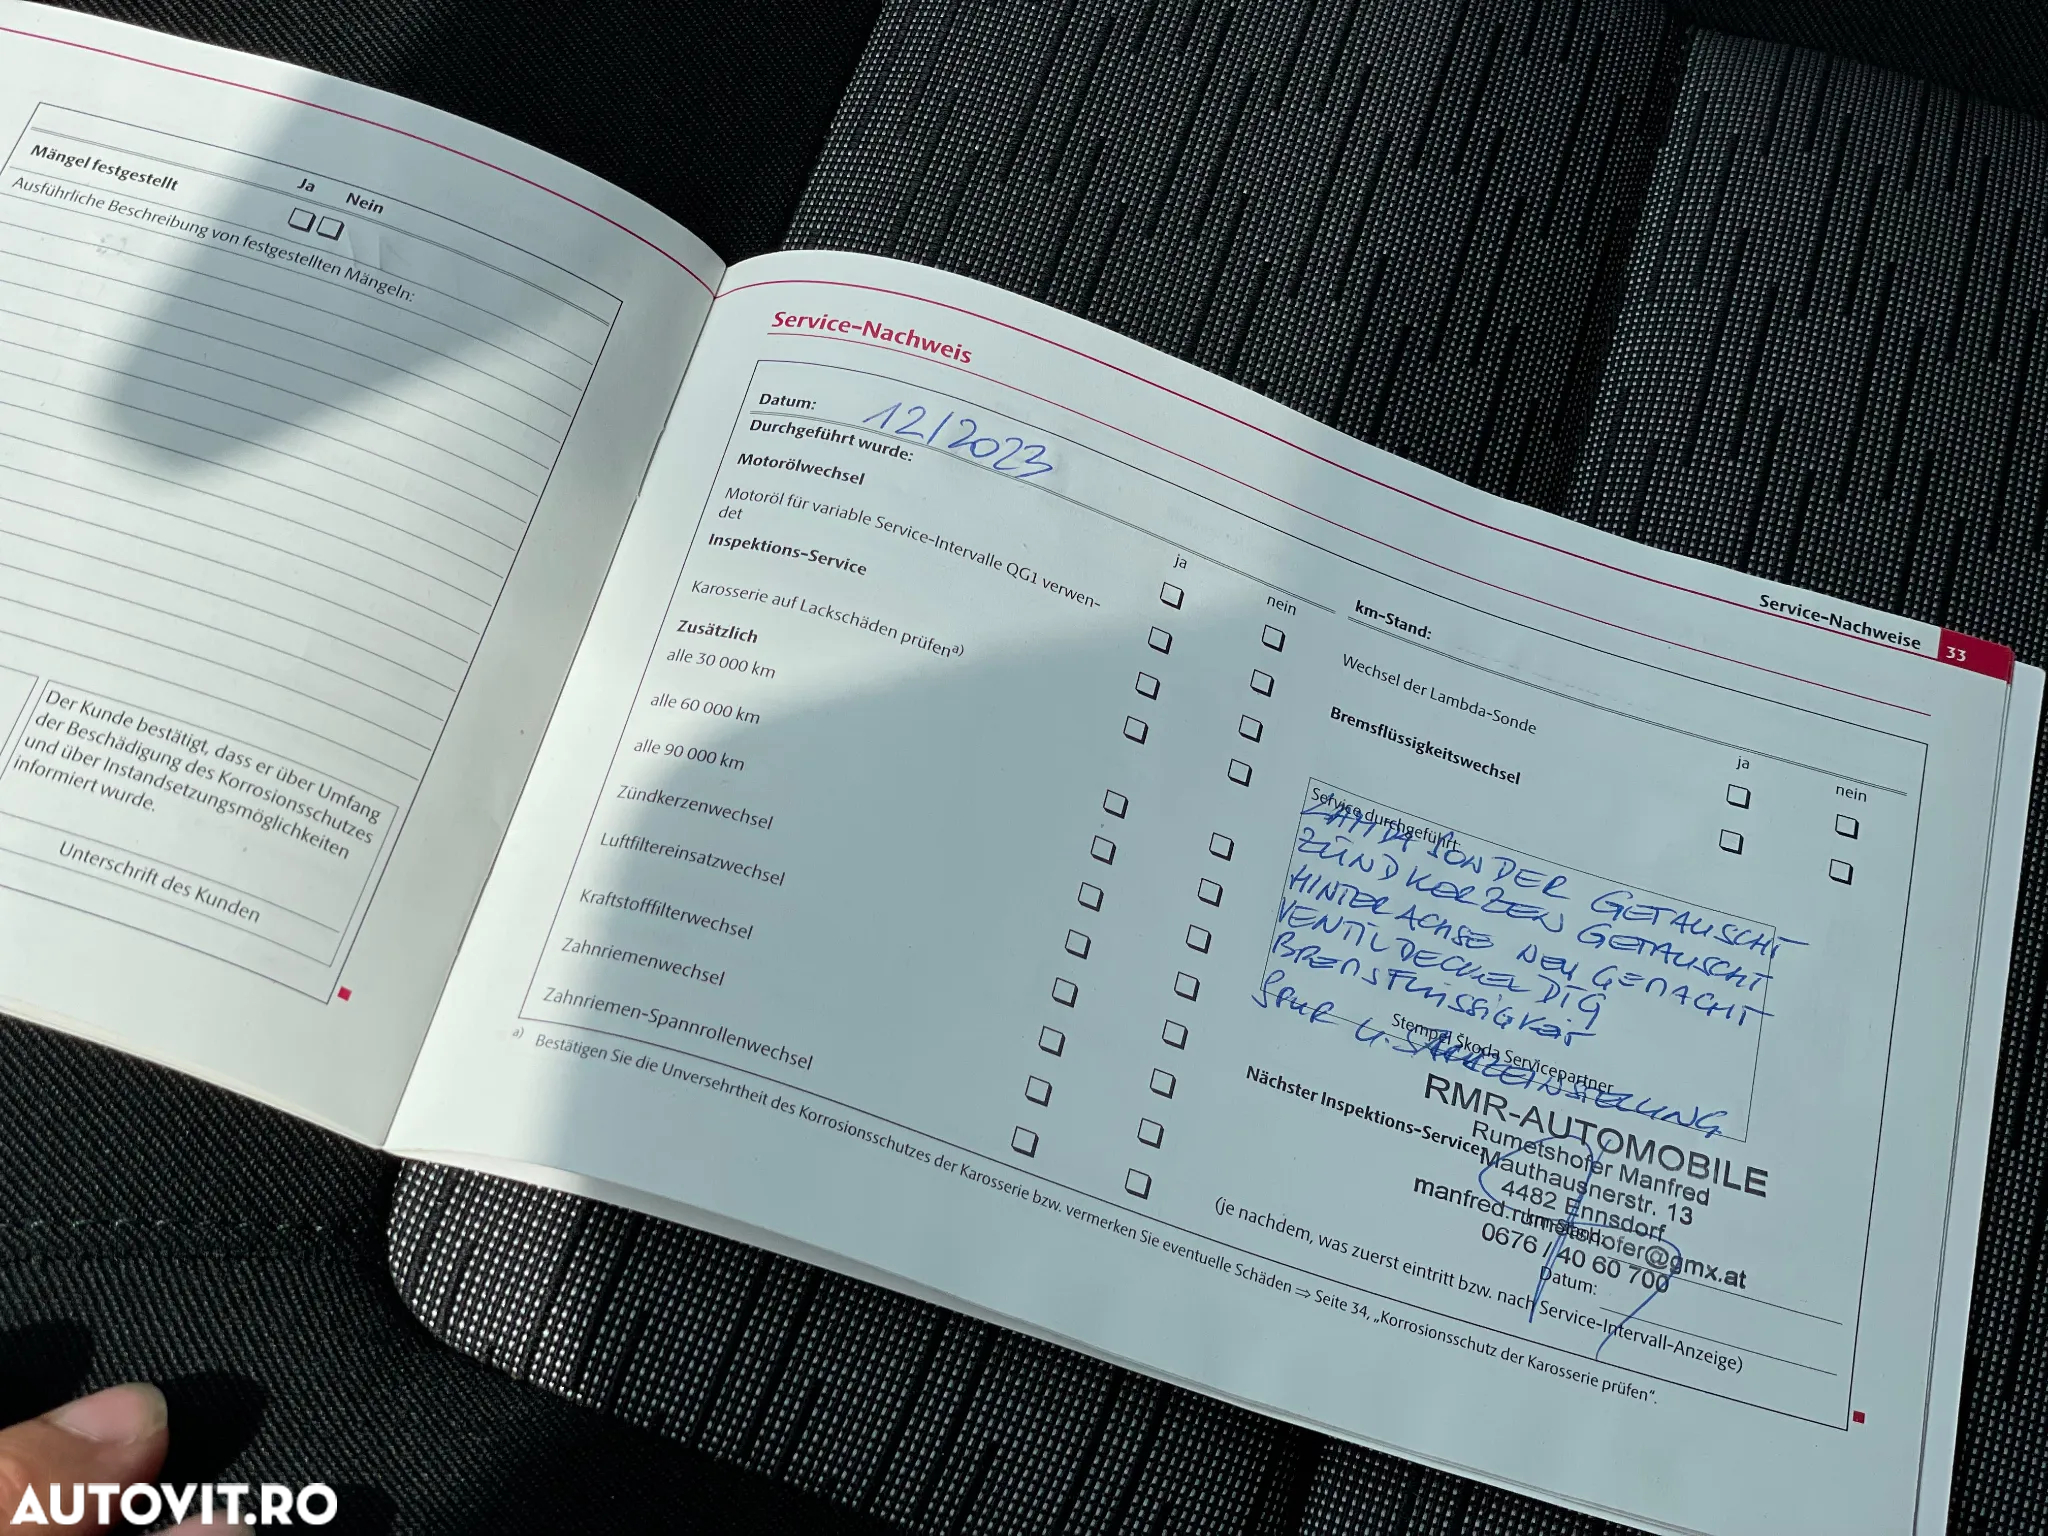 Mängel festgestellt
Ja
Nein
Ausführliche Beschreibung von festgestellten Mängeln:
Der Kunde bestätigt, dass er über Umfang
der Beschädigung des Korrosionsschutzes
und über Instandsetzungsmöglichkeiten
informiert wurde.
Unterschrift des Kunden
Service-Nachweise 33
Service-Nachweis
Datum: 12/2023
km-Stand:
Durchgeführt wurde:
ja
nein
Motorölwechsel
Motoröl für variable Service-Intervalle QG1 verwen-
det
Inspektions-Service
Karosserie auf Lackschäden prüfen a)
Zusätzlich
alle 30 000 km
alle 60 000 km
alle 90 000 km
Zündkerzenwechsel
Luftfiltereinsatzwechsel
Kraftstofffilterwechsel
Zahnriemenwechsel
Zahnriemen-Spannrollenwechsel
ja
nein
Wechsel der Lambda-Sonde
Bremsflüssigkeitswechsel
Service durchgeführt:
SONDER GETAUSCHT
ZÜNDKERZEN GETAUSCHT
HINTERACHSE NEU GEMACHT
VENTILDECKELDTG
BREMSFLÜSSIGKEIT
SPUR U.
Stempel Škoda Servicepartner
RMR-AUTOMOBILE
Rumetshofer Manfred
Mauthausnerstr. 13
4482 Ennsdorf
manfred.rumetshofer@gmx.at
0676 / 40 60 700
Nächster Inspektions-Service
km-Stand:
Datum:
(je nachdem, was zuerst eintritt bzw. nach Service-Intervall-Anzeige)
a) Bestätigen Sie die Unversehrtheit des Korrosionsschutzes der Karosserie bzw. vermerken Sie eventuelle Schäden ⇒ Seite 34, „Korrosionsschutz der Karosserie prüfen“.
AUTOVIT.RO